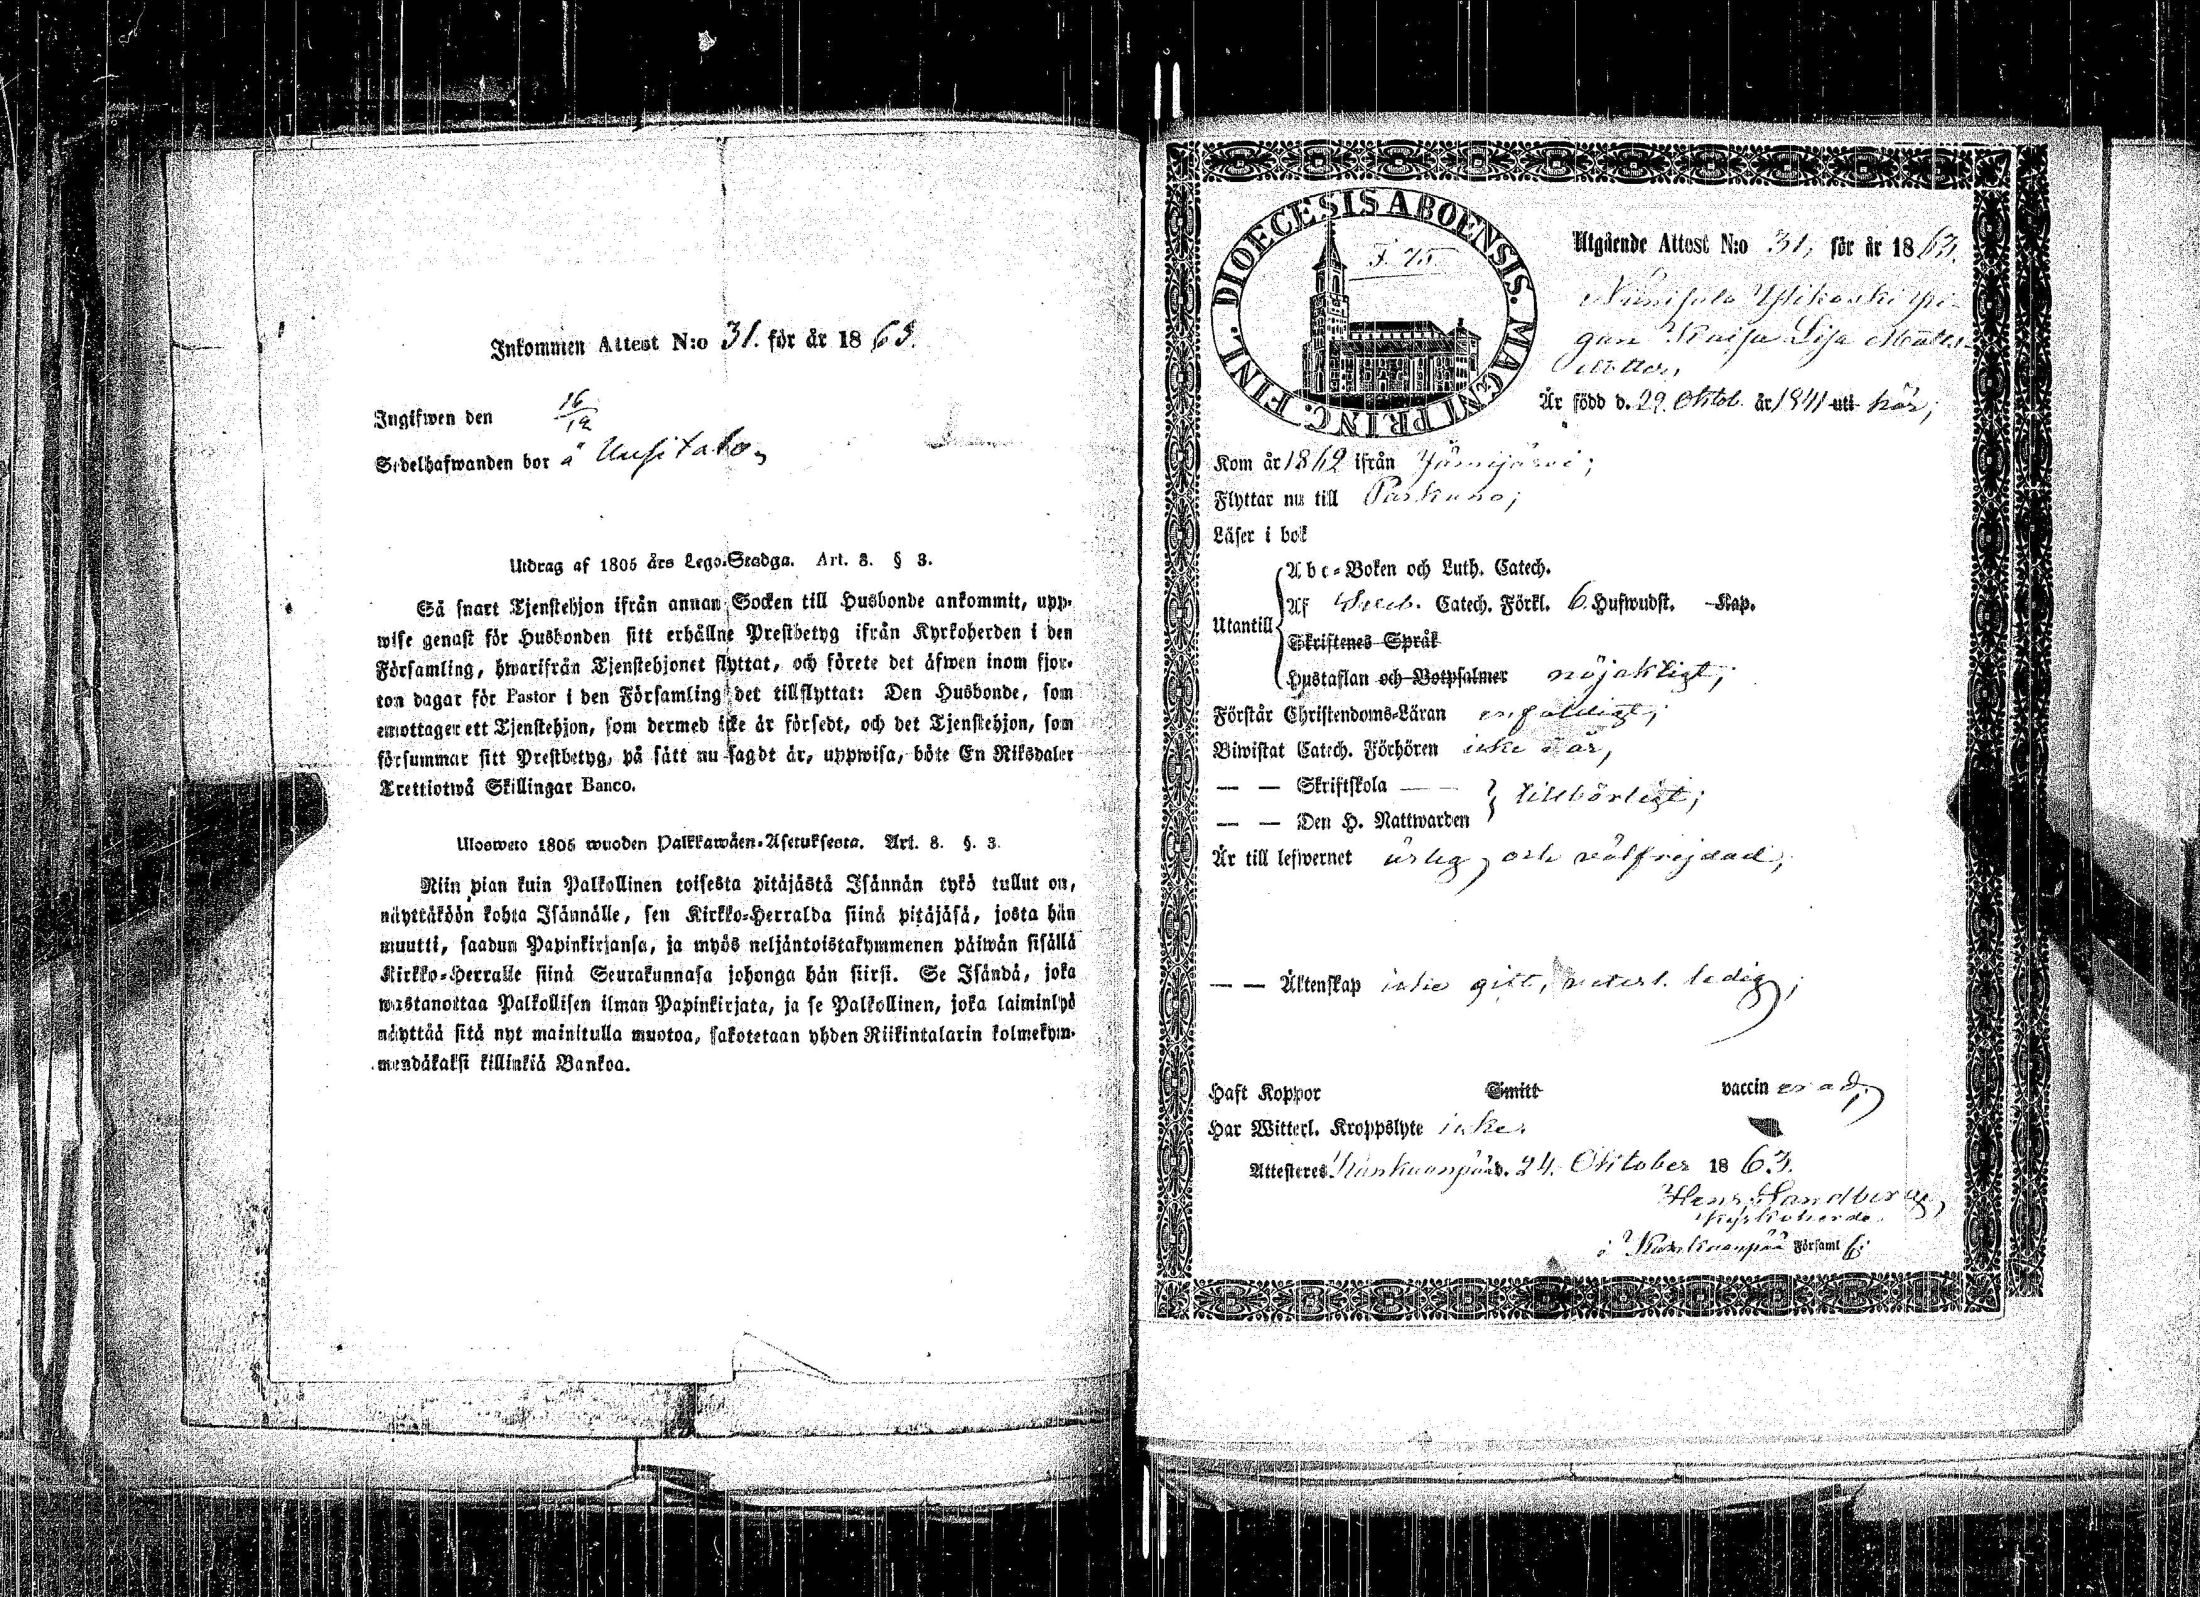 Inkommen Attest N:o 31. för år 1863.
Ingifwen den 16/12
Sedelhafwanden bor å Uusitalo,
Utdrag af 1805 års Lego-Stadga. Art. 8. § 3.
Så snart Tjenstehjon ifrån annan Socken till Husbonde ankommit, upp-
wise genast för Husbonden sitt erhållne Prestbetyg ifrån Kyrkoherden i den
Församling, hwarifrån Tjenstehjonet flyttat, och förete det äfwen inom fjor-
ton dagar för Pastor i den Församling det tillflyttat: Den Husbonde, som
emottager ett Tjenstehjon, som dermed icke är försedt, och det Tjenstehjon, som
försummar sitt Prestbetyg, på sätt nu sagdt är, uppwisa, böte En Riksdaler
Trettiotwå Skillingar Banco.
Ulosweto 1805 wuoden Palkkawäen-Asetuksesta. Art. 8. §. 3.
Niin pian kuin Palkollinen toisesta pitäjästä Isännän tykö tullut on,
näyttäköön kohta Isännälle, sen Kirkko-Herralda siinä pitäjäsä, josta hän
muutti, saadun Papinkirjansa, ja myös neljäntoistakymmenen päiwän sisällä
Kirkko-Herralle siinä Seurakunnasa johonga hän siirsi. Se Isändä, joka
wastanottaa Palkollisen ilman Papinkirjata, ja se Palkollinen, joka laiminlyö
näyttää sitä nyt mainitulla muotoa, sakotetaan yhden Riikintalarin kolmekym-
mendäkaksi killinkiä Bankoa.
DIOECESIS ABOENSIS. MAGNI PRINC. FINL.
F. 75
Utgående Attest N:o 31, för år 1863.
Ylikoski pi-
gan Kaisa Lisa Matts-
dotter,
Är född d. 29. Oktob. år 1841 uti här;
Kom år 1862 ifrån Jämijärvi;
Flyttar nu till Parkano;
Läser i bok
Utantill
Abc-Boken och Luth. Catech.
Af Sveb. Catech. Förkl. 6. Hufwudst. Kap.
Skriftenes Språk
Hustaflan och Botpsalmer nöjaktigt;
Förstår Christendoms-Läran enfaldigt;
Biwistat Catech. Förhören icke i år,
— — Skriftskola — —
— — Den H. Nattwarden } tillbörligt;
Är till lefwernet ärlig, och välfrejdad;
— — Äktenskap icke gift, veterl. ledig;
Haft Koppor Smitt vaccinerad;
Har Witterl. Kroppslyte icke.
Attesteres Kankaanpää d. 24. Oktober 1863.
Henr. Sandberg,
Kyrkoherde
i Kankaanpää Församl.